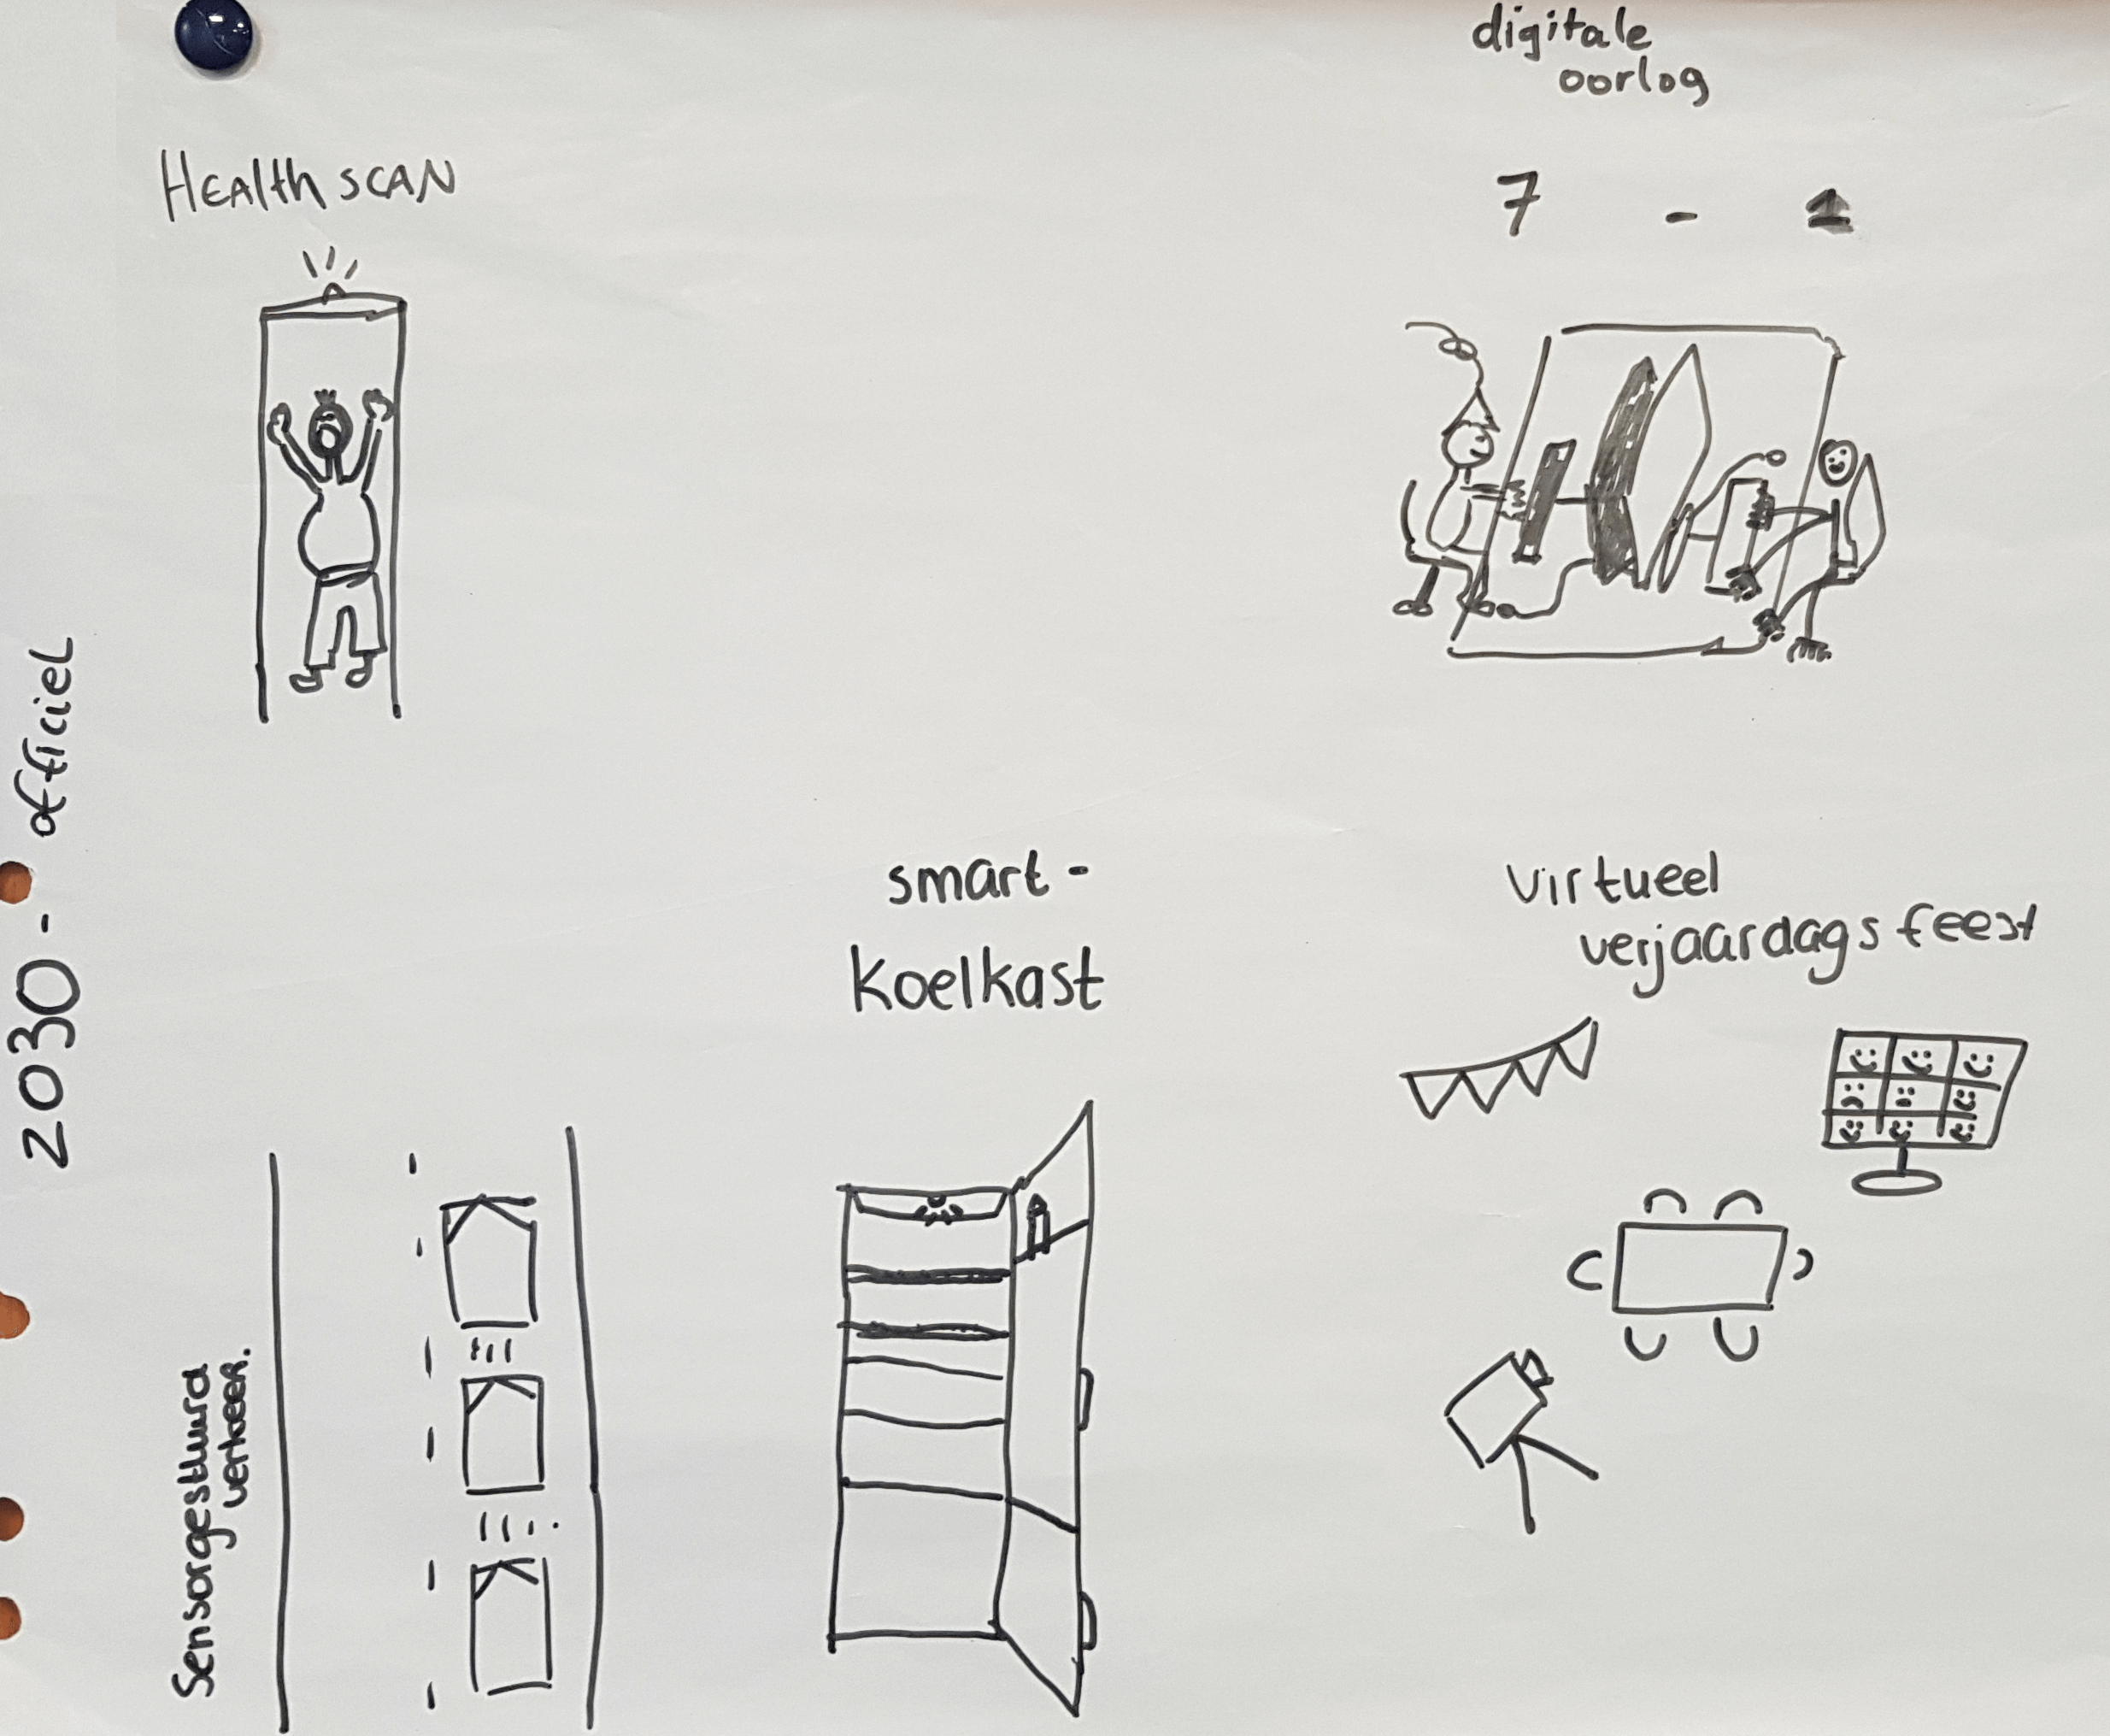 2030 - officiel
HEAlth SCAN
digitale
oorlog
7 - 1
smart-
koelkast
virtueel
verjaardagsfeest
Sensorgestuurd
verkeer.